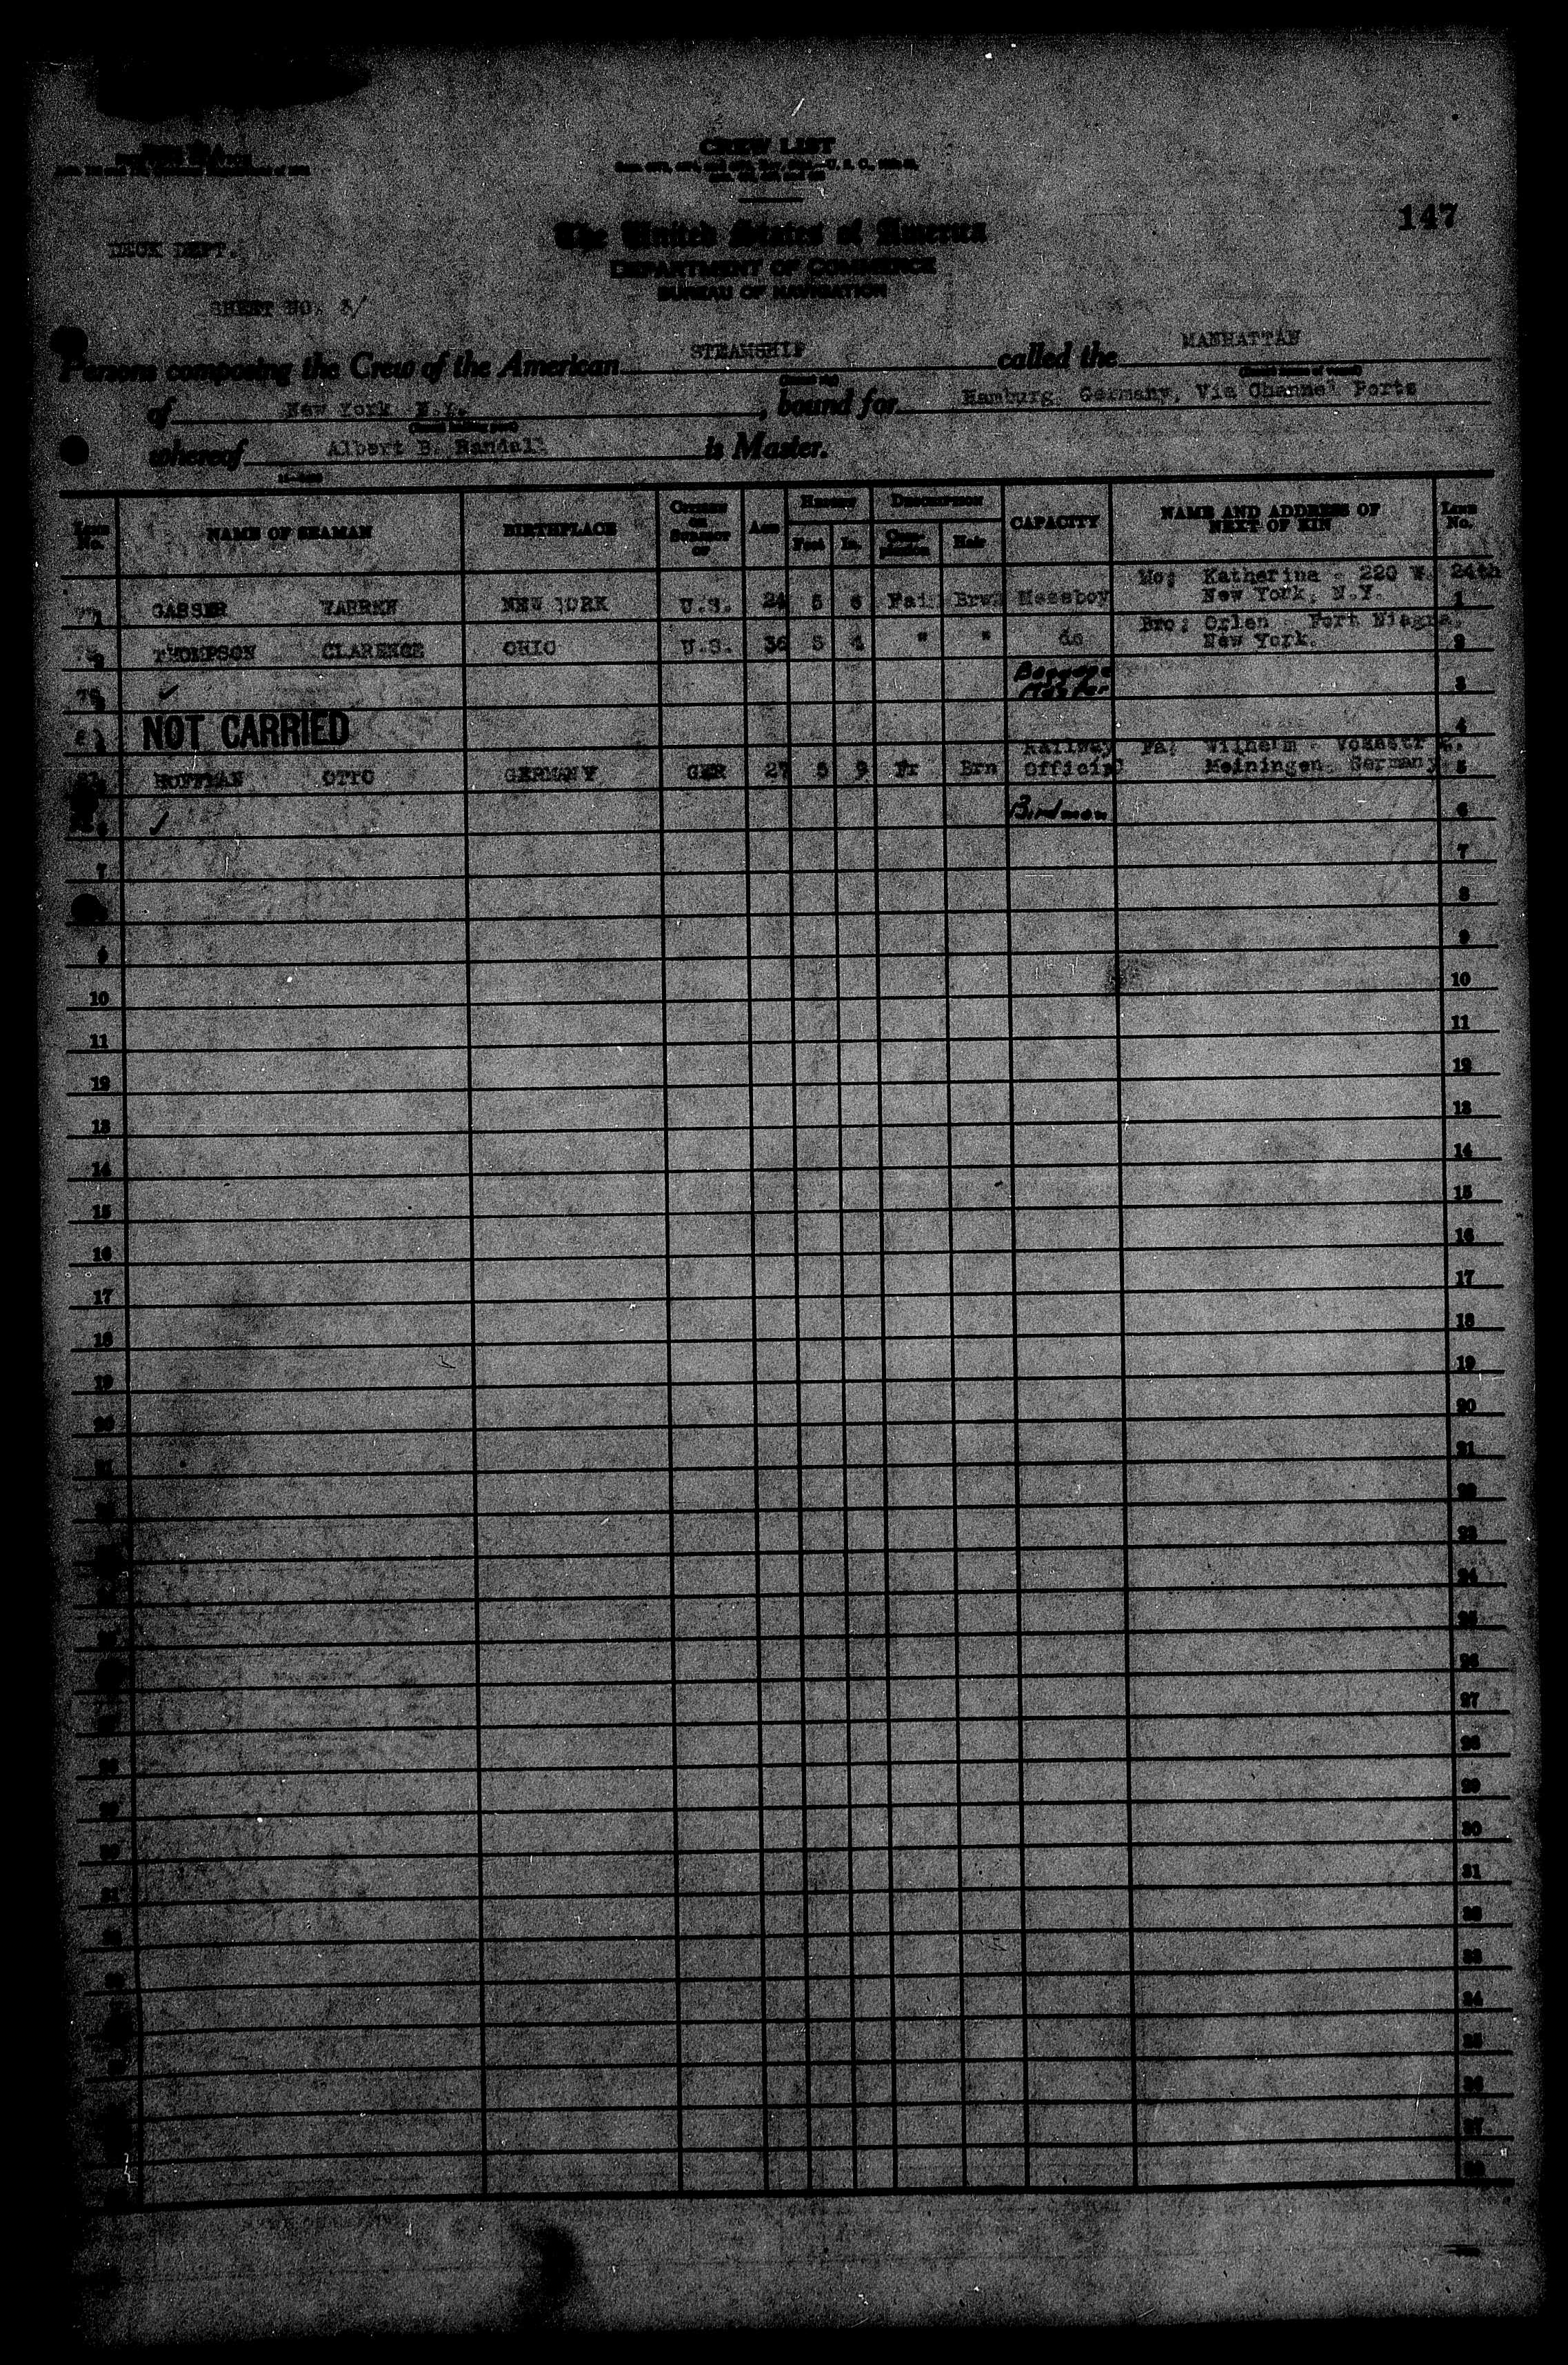 CREW LIST
147
The United States of America
DECK DEPT.
DEPARTMENT OF COMMERCE
BUREAU OF NAVIGATION
SHEET NO. 3/
Persons composing the Crew of the American STEAMSHIP called the MANHATTAN
of New York N.Y. , bound for Hamburg, Germany, Via Channel Ports
whereof Albert B. Randall is Master.
Line No. NAME OF SEAMAN BIRTHPLACE Citizen or Subject of Age Height Feet In. Description Complexion Hair CAPACITY NAME AND ADDRESS OF NEXT OF KIN Line No.
Mo; Katherina - 220 W. 24th
GASSER WARREN NEW YORK U.S. 24 5 6 Fair Brwn Messboy New York, N.Y. 1
Bro; Orlen Fort Niagra,
THOMPSON CLARENCE OHIO U.S. 36 5 4 " " do New York. 2
✓ Baggage Master 3
NOT CARRIED 4
Railway Fa; Wilhelm
HOFFMAN OTTO GERMANY GER 27 5 9 Fr Brn Official Meiningen Germany 5
✓ 6
7 7
8
9 9
10 10
11 11
12 12
13 13
14 14
15 15
16 16
17 17
18 18
19 19
20 20
21 21
22
23
24
25
26
27
28
29
30
31
32
33
34
35
36
37